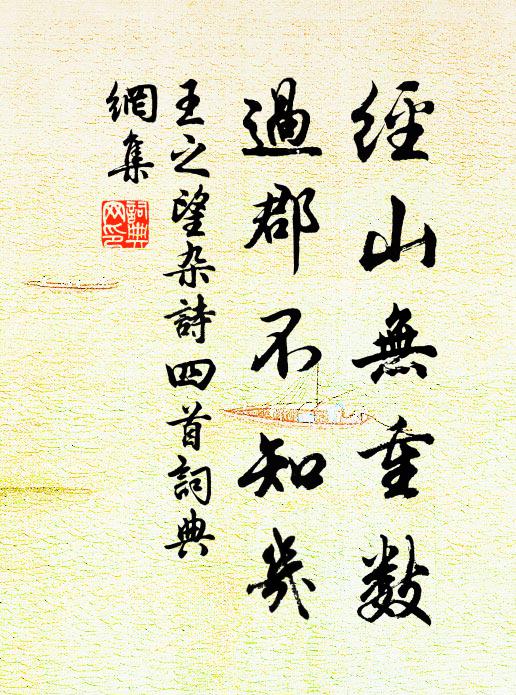 經山無重数
過郡不知幾
王之望杂詩四首詞典
網集
詞典网印